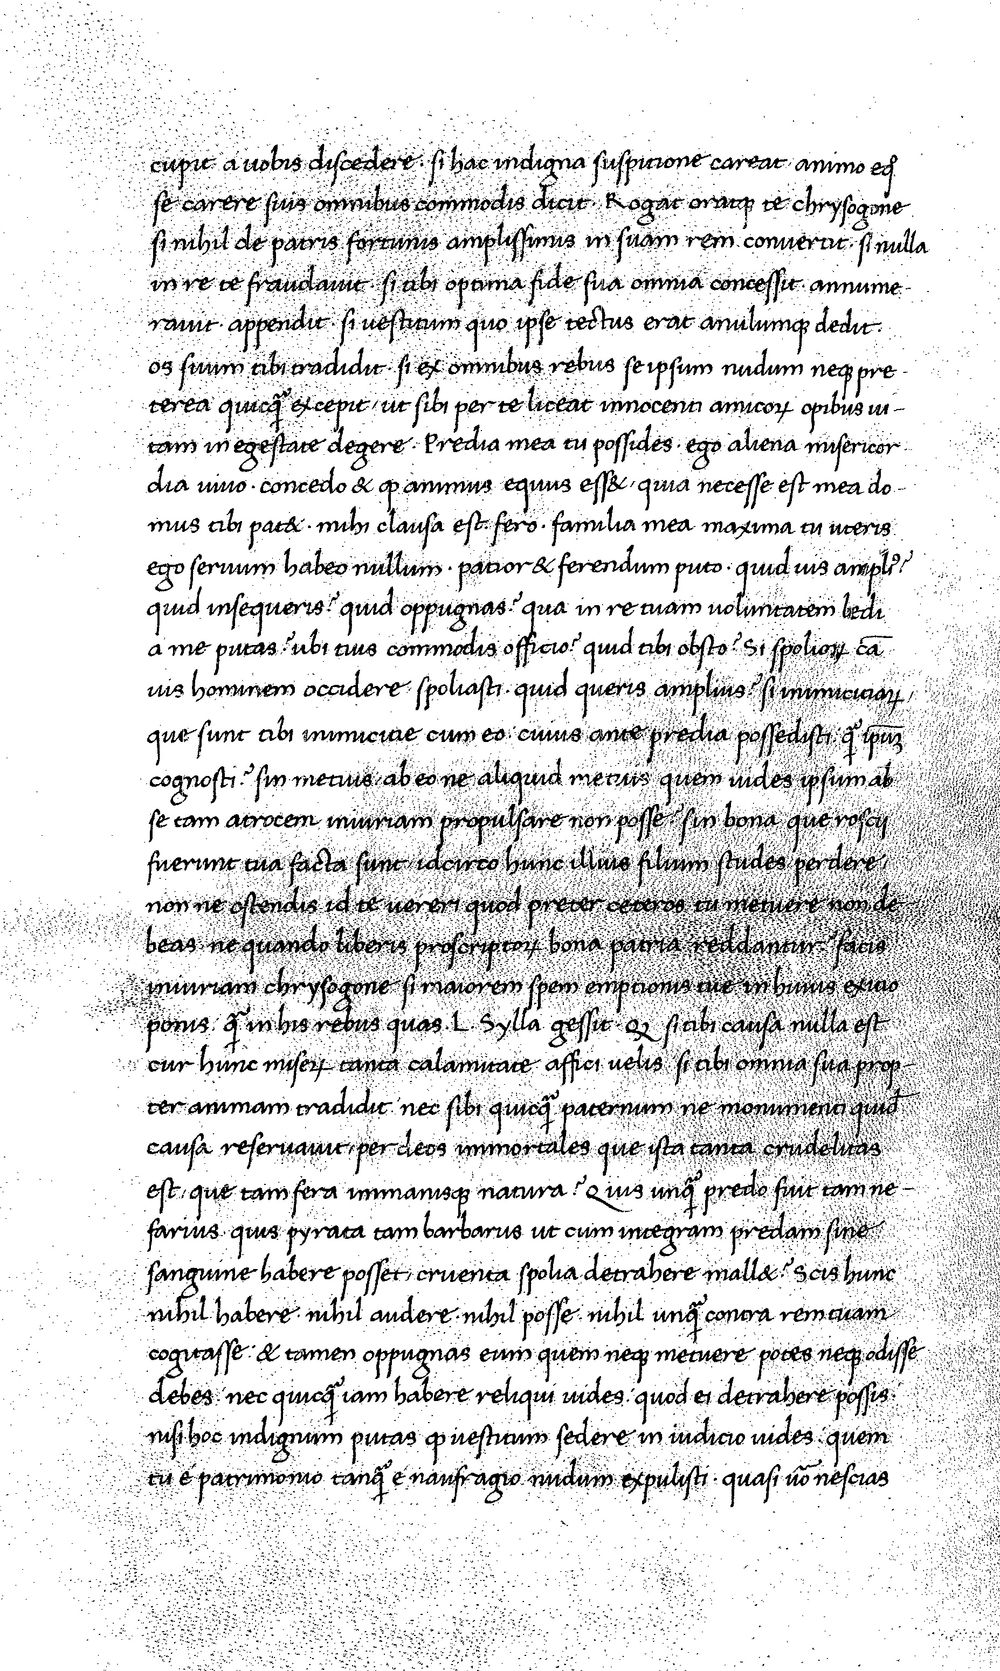 cupit a uobis discedere · si hac indigna suspitione careat animo eq̃
se carere suis omnibus commodis dicit · Rogat oratq; te chrysogone
si nihil de patris fortunis amplissimis in suam rem conuertit · si nulla
in re te fraudauit · si tibi optima fide sua omnia concessit · annume-
rauit · appendit · si uestitum quo ipse tectus erat anulumq; dedit ·
os suum tibi tradidit · si ex omnibus rebus se ipsum nudum neq; pre-
terea quicq̃ excepit, ut sibi per te liceat innocenti amicoꝝ opibus ui-
tam in egestate degere · Predia mea tu possides · ego aliena misericor-
dia uiuo · concedo & ꝙ animus equus ess&, quia necesse est mea do-
mus tibi pat& · mihi clausa est · fero · familia mea maxima tu uteris
ego seruum habeo nullum · patior & ferendum puto · quid uis ampliꝰ?
quid insequeris? quid oppugnas? qua in re tuam uoluntatem lędi
a me putas? ubi tuis commodis officio? quid tibi obsto? Si spolioꝝ cā
uis hominem occidere spoliasti · quid queris amplius? si inimicitiaꝝ,
que sunt tibi inimicitie cum eo · cuius ante predia possedisti q̃ ipūȝ
cognosti? sin metuis, ab eo ne aliquid metuis quem uides ipsum ab
se tam atrocem iniuriam propulsare non posse? sin bona que roscij
fuerunt tua facta sunt, idcirco hunc illius filium studes perdere,
non ne ostendis id te uereri quod preter ceteros tu metuere non de-
beas ne quando liberis proscriptoꝝ bona patria reddantur? facis
iniuriam chrysogone si maiorem spem emptionis tue in huius exitio
ponis q̃ in his rebus quas L. Sylla gessit · Qꝫ si tibi causa nulla est
cur hunc miseꝝ tanta calamitate affici uelis si tibi omnia sua prop-
ter animam tradidit nec sibi quicq̃ paternum ne monumenti quid̄
causa reseruauit, per deos immortales que ista tanta crudelitas
est, que tam fera immanisq; natura? Quis unq̃ predo fuit tam ne-
farius quis pyrata tam barbarus ut cum integram predam sine
sanguine habere posset, cruenta spolia detrahere mall&? Scis hunc
nihil habere · nihil audere · nihil posse · nihil unq̃ contra rem tuam
cogitasse · & tamen oppugnas eum quem neq; metuere potes neq; odisse
debes · nec quicq̃ iam habere reliqui uides · quod ei detrahere possis
nisi hoc indignum putas ꝙ uestitum sedere in iudicio uides · quem
tu e patrimonio tanq̃ e naufragio nudum expulisti · quasi uo̅ nescias